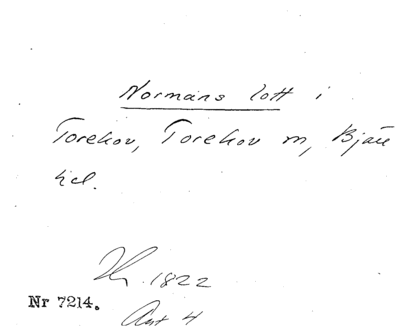 Normans lott i
Torekov, Torekov m, Bjäre
hd.
1822
Nr 7214.
Art 4